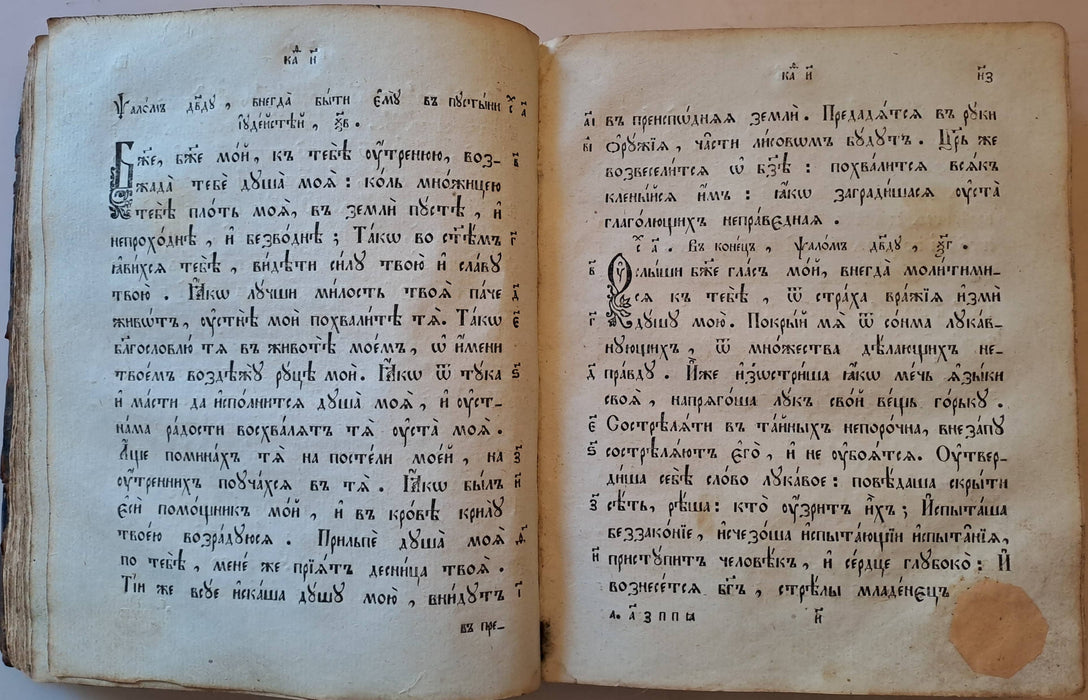 каѳ. и҃
Ѱало́мъ дв҃ду, внегда̀ бы́ти є҆мꙋ̀ въ пꙋсты́ни с҃ а҃
і҆ꙋде́йстѣй, ѯ҃в.
Бж҃е, бж҃е мо́й, къ тебѣ̀ ᲂу҆́тренюю, воз- в҃
жада̀ тебѐ дꙋша̀ моѧ̀: ко́ль мно́жицею
тебѣ̀ пло́ть моѧ̀, въ землѝ пꙋстѣ̀, и҆
непрохо́днѣ, и҆ безво́днѣ; Та́кѡ во ст҃ѣ́мъ г҃
ꙗ҆ви́хсѧ тебѣ̀, ви́дѣти си́лꙋ твою̀ и҆ сла́вꙋ
твою̀. Ꙗ҆́кѡ лꙋ́чши ми́лость твоѧ̀ па́че д҃
живѡ́тъ, ᲂу҆стнѣ̀ моѝ похвали́тѣ тѧ̀. Та́кѡ є҃
блг҃ословлю̀ тѧ въ животѣ̀ мое́мъ, ѡ҆ и҆́мени
твое́мъ воздѣ́жꙋ рꙋ́цѣ моѝ. Ꙗ҆́кѡ ѿ тꙋ́ка ѕ҃
и҆ ма́сти да и҆спо́лнитсѧ дꙋша̀ моѧ̀, и҆ ᲂу҆ст-
на́ма ра́дости восхва́лѧтъ тѧ̀ ᲂу҆ста̀ моѧ̀.
А҆́ще помина́хъ тѧ̀ на посте́ли мое́й, на з҃
ᲂу҆́тренних поꙋча́хсѧ въ тѧ̀. Ꙗ҆́кѡ бы́лъ и҃
є҆сѝ помо́щникъ мо́й, и҆ въ кро́вѣ крилꙋ̀
твоє́ю возра́дꙋюсѧ. Прильпѐ дꙋша̀ моѧ̀ ѳ҃
по тебѣ̀, мене́ же прїѧ́тъ десни́ца твоѧ̀.
Ті́и же всꙋ́е и҆ска́ша дꙋ́шꙋ мою̀, вни́дꙋтъ і҃
въ пре-
каѳ. и҃ н҃з
а҃і въ преиспѡ́днѧѧ землѝ. Предадѧ́тсѧ въ рꙋ́ки
в҃і ѻ҆рꙋ́жїѧ, ча́сти ли́сѡвѡмъ бꙋ́дꙋтъ. Цр҃ь же
возвесели́тсѧ ѡ҆ бз҃ѣ: похва́литсѧ всѧ́къ
клены́йсѧ и҆́мъ: ꙗ҆́кѡ загради́шасѧ ᲂу҆ста̀
глаго́лющихъ непра́вєднаѧ.
с҃ а҃. Въ коне́цъ, ѱало́мъ дв҃дꙋ, ѯ҃г.
в҃ Оу҆слы́ши бж҃е гла́съ мо́й, внегда̀ моли́тими-
сѧ къ тебѣ̀, ѿ стра́ха вра́жїѧ и҆змѝ
г҃ дꙋ́шꙋ мою̀. Покры́й мѧ̀ ѿ со́нма лꙋка́в-
нꙋющихъ, ѿ мно́жества дѣ́лающихъ не-
д҃ пра́вдꙋ. И҆̀же и҆зѡстри́ша ꙗ҆́кѡ ме́чь ѧ҆зы́ки
своѧ̀, напрѧго́ша лꙋ́къ сво́й ве́щь го́рькꙋ.
є҃ Состре́лѧти въ та́йныхъ непоро́чна, внеза́пꙋ
ѕ҃ состре́лѧютъ є҆го̀, и҆ не ᲂу҆боѧ́тсѧ. Оу҆твер-
ди́ша себѣ̀ сло́во лꙋка́вое: повѣ́даша скры́ти
з҃ сѣ́ть, рѣ́ша: кто̀ ᲂу҆́зритъ и҆̀хъ; И҆спыта́ша
беззако́нїе, и҆счезо́ша и҆спыта́ющїи и҆спыта̑нїѧ,
и҃ пристꙋ́питъ человѣ́къ, и҆ се́рдце глꙋбоко̀: И҆
вознесе́тсѧ бг҃ъ, стрѣ́лы младе́нєцъ
а. а҃ з п п ы и҃